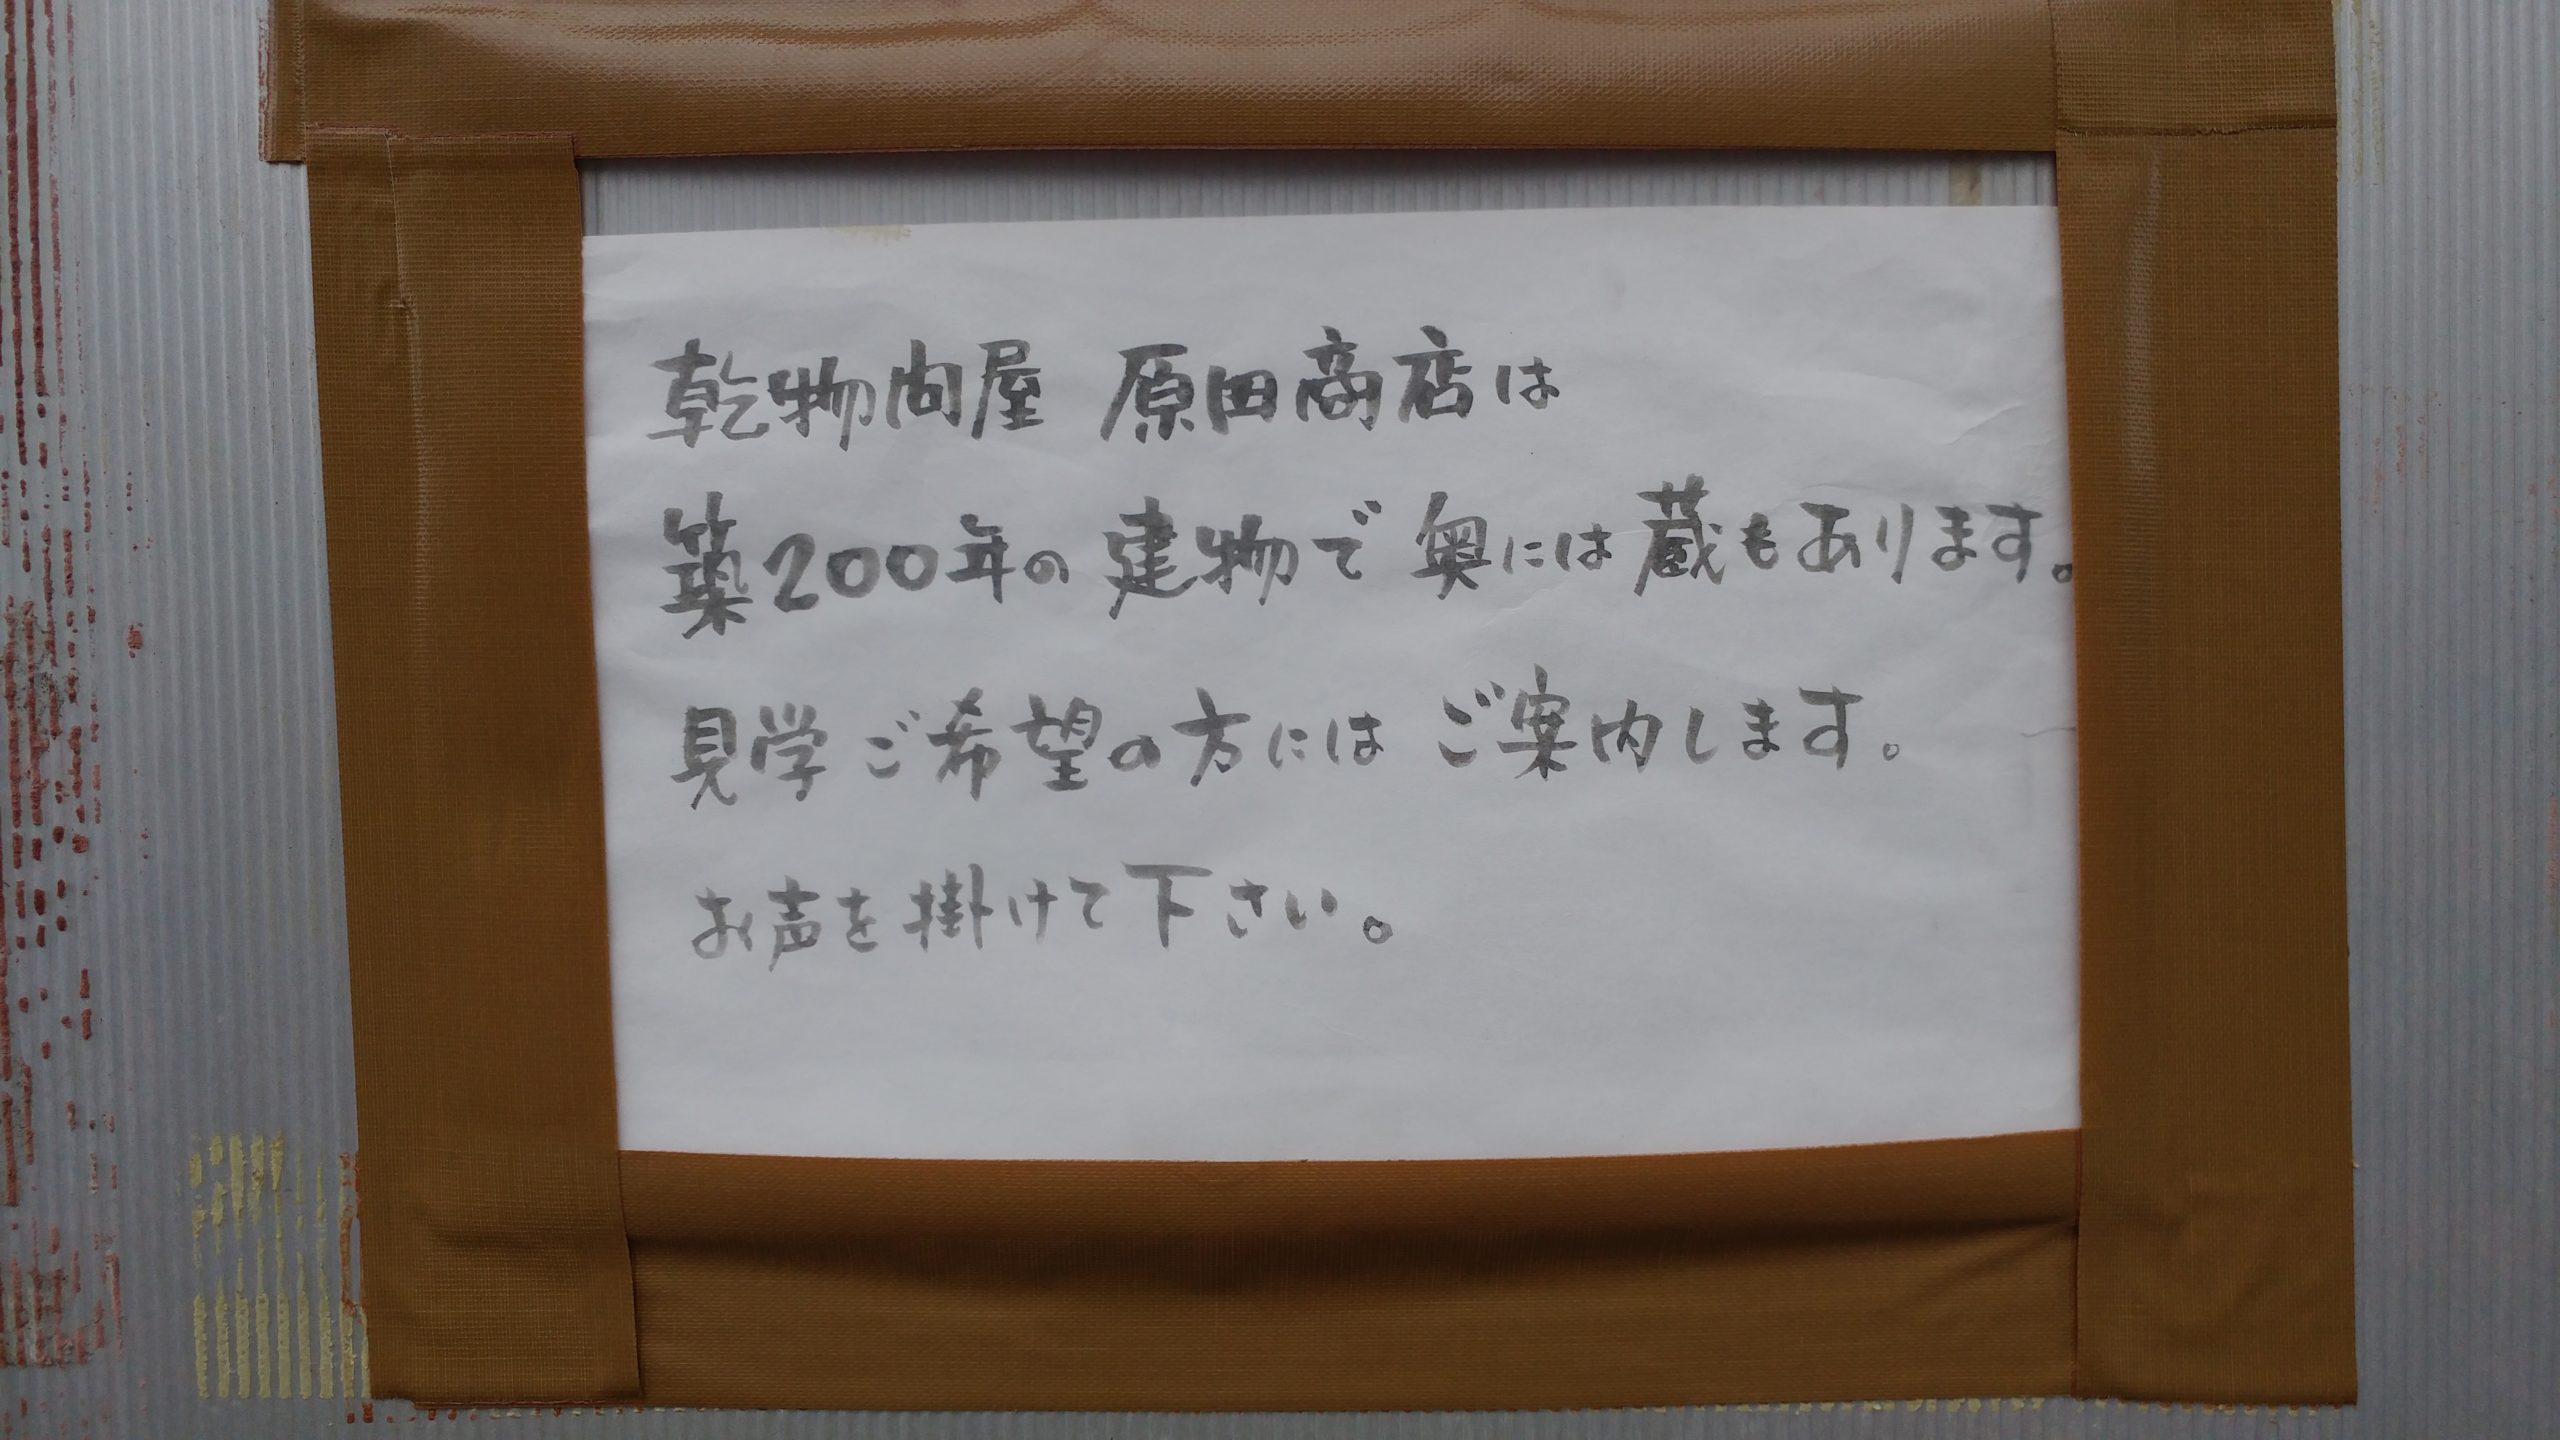 乾物問屋 原田商店は
築200年の建物で奥には蔵もあります。
見学ご希望の方にはご案内します。
お声を掛けて下さい。